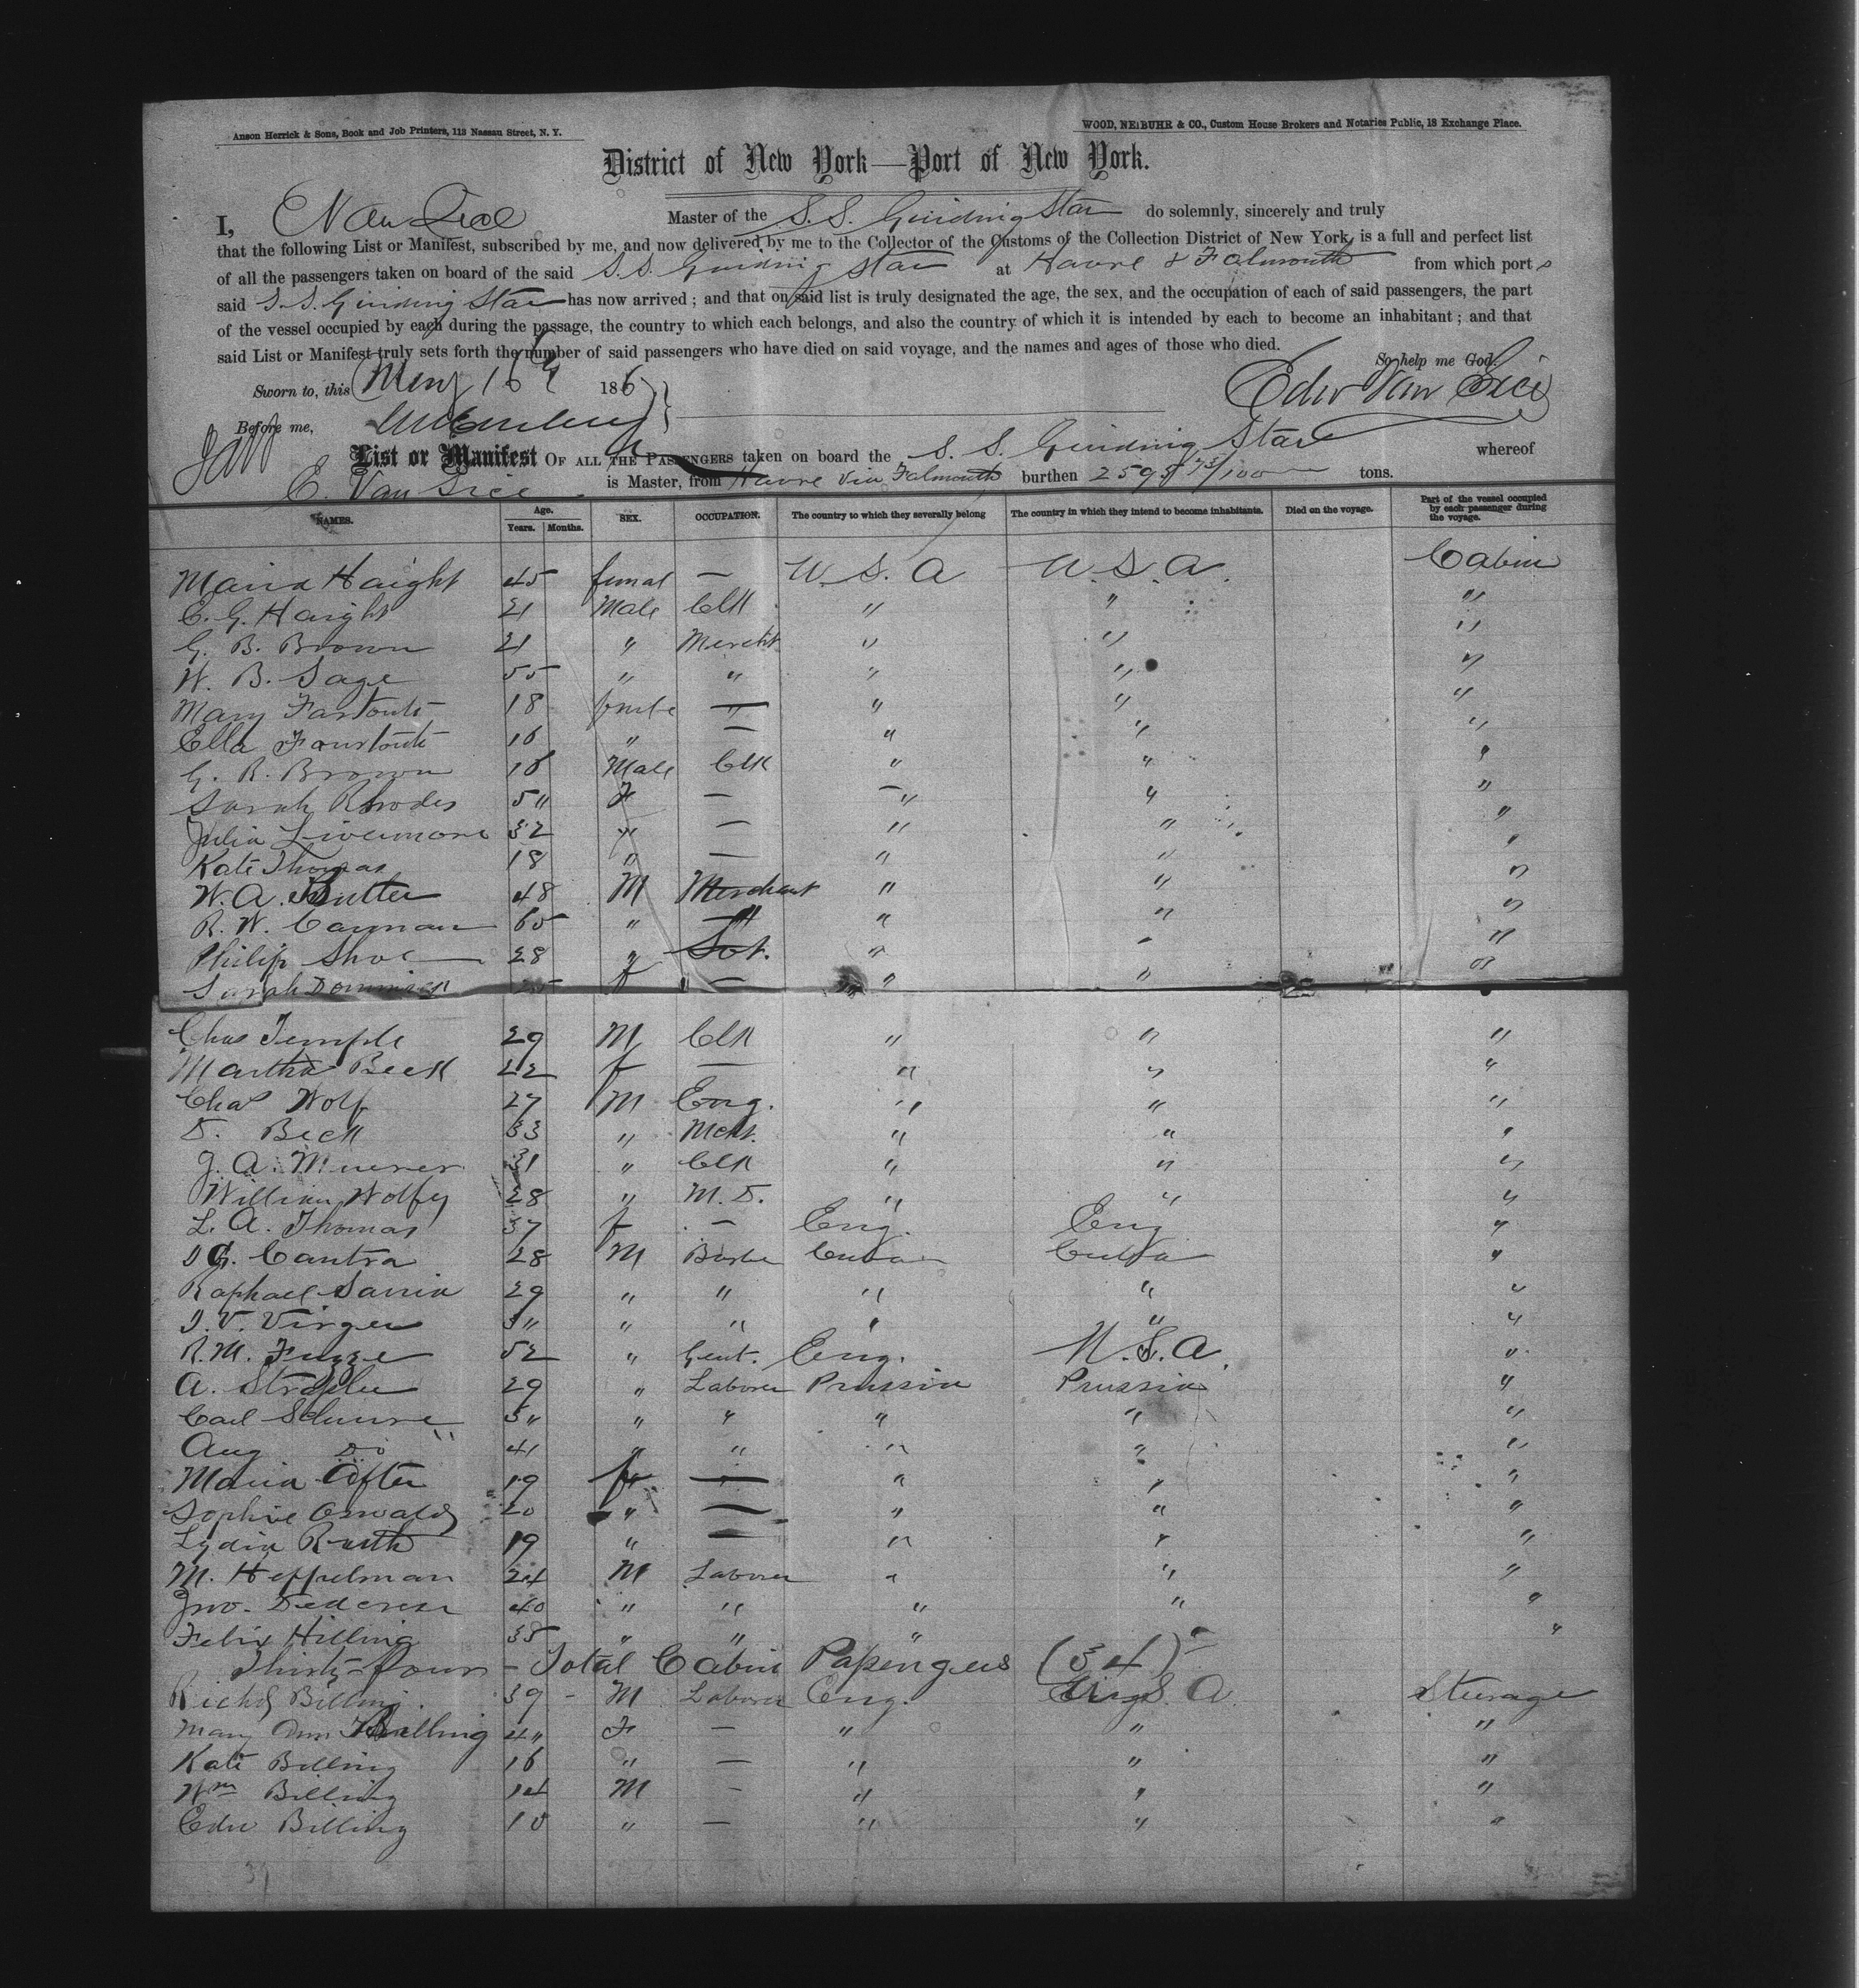 Anson Herrick & Sons, Book and Job Printers, 113 Nassau Street, N. Y.
WOOD, NEIBUHR & CO., Custom House Brokers and Notaries Public, 18 Exchange Place.
District of New York—Port of New York.
I, E Van Sice Master of the S.S. Guiding Star do solemnly, sincerely and truly
that the following List or Manifest, subscribed by me, and now delivered by me to the Collector of the Customs of the Collection District of New York, is a full and perfect list
of all the passengers taken on board of the said S.S. Guiding Star at Havre & Falmouth from which ports
said S.S. Guiding Star has now arrived; and that on said list is truly designated the age, the sex, and the occupation of each of said passengers, the part
of the vessel occupied by each during the passage, the country to which each belongs, and also the country of which it is intended by each to become an inhabitant; and that
said List or Manifest truly sets forth the number of said passengers who have died on said voyage, and the names and ages of those who died.
So help me God.
Sworn to, this May 16 186 Edw Van Sice
Before me,
List or Manifest OF ALL THE PASSENGERS taken on board the S. S. Guiding Star whereof
E. Van Sice is Master, from Havre via Falmouth burthen 2595 75/100 tons.
NAMES. Age. Years. Months. SEX. OCCUPATION. The country to which they severally belong The country in which they intend to become inhabitants. Died on the voyage. Part of the vessel occupied by each passenger during the voyage.
Maria Haight 45 femal — U. S. A U. S. A. Cabin
C. G. Haight 21 Male Clk " " "
G. B. Brown 21 " Mercht " " "
W. B. Sage 55 " " " " "
Mary 18 female — " " "
Ella 16 " — " " "
G. B. Brown 16 Male Clk " " "
Sarah Rhodes 5" F — " " "
Julia Livermore 32 " — " " "
Kate Thomas 18 " — " " "
W. A. Butler 48 M Merchant " " "
R. W. Carman 65 " " " " "
Philip Shoe 28 " " " "
Sarah Dominick 25 f — " " "
Chas Temple 29 M Clk " " "
Martha Beck 22 f — " " "
Chas Wolf 27 M Eng. " " "
D. Beck 33 " Mcht. " " "
J. A. Muerer 31 " Clk " " "
William Wolfy 28 " M. D. " " "
L. A. Thomas 37 f — Eng Eng "
Cantra 28 M Cuba Cuba "
Raphael Sarria 29 " " " " "
J. V. Virgen 3" " " " " "
R. M. 52 " Gent. Eng. U. S. A. "
A. 29 " Laborer Prussia Prussia "
Carl 3" " " " " "
Aug Do 41 " " " " "
Maria 19 f — " " "
Sophie Oswald 20 " — " " "
Lydia Rusth 19 " — " " "
M. Heppelman 24 M Laborer " " "
Jno. 40 " " " " "
Felix Hilling 35 " " " "
Thirty-four - Total Cabin Passengers (34)
Richd Billing. 39 - M Laborer Eng. U. S. A. Steerage
Mary Ann Billing 4" F — " " "
Kate Billing 16 " — " " "
Wm Billing 14 M - " " "
Edw Billing 10 " — " " "
39